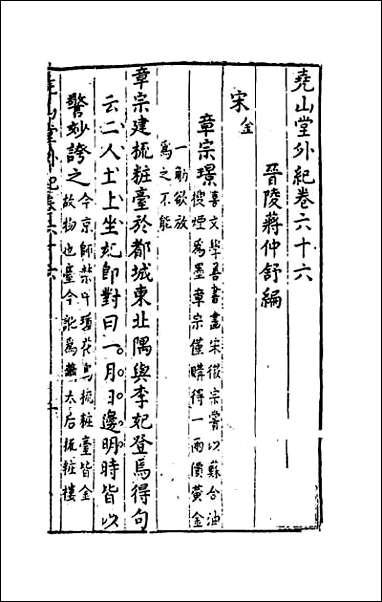 堯山堂外紀卷六十六
晉陵蔣仲舒編
宋 金
章宗璟 喜文學善書畫宋徽宗嘗以蘇合油
搜煙爲墨章宗僅購得一兩價黃金
一觔欲放
爲之不能
章宗建梳粧臺於都城東北隅與李妃登焉得句
云二人土上坐妃卽對曰一月日邊明時皆以
警妙誇之 今京師禁中瓊花島梳粧臺皆金
故物也臺今訛爲蕭太后梳粧樓
堯山堂外紀卷六十六